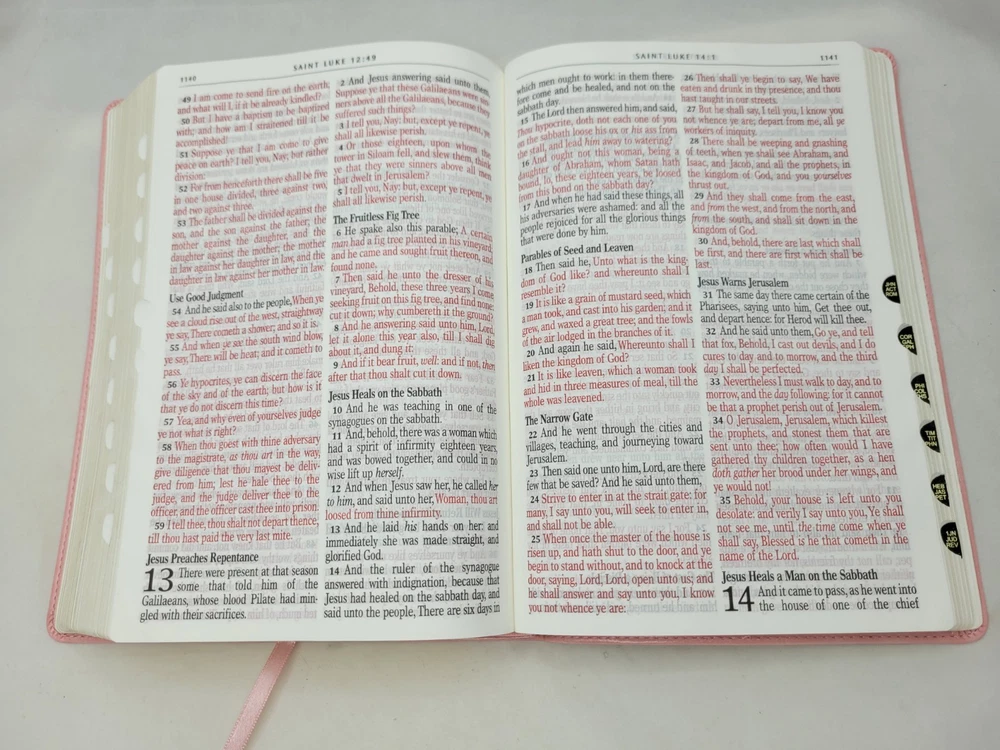 1140
SAINT LUKE 12:49
49 I am come to send fire on the earth;
and what will I, if it be already kindled?
50 But I have a baptism to be baptized
with; and how am I straitened till it be
accomplished!
51 Suppose ye that I am come to give
peace on earth? I tell you, Nay; but rather
division:
52 For from henceforth there shall be five
in one house divided, three against two,
and two against three.
53 The father shall be divided against the
son, and the son against the father; the
mother against the daughter, and the
daughter against the mother; the mother
in law against her daughter in law, and the
daughter in law against her mother in law.
Use Good Judgment
54 And he said also to the people, When ye
see a cloud rise out of the west, straightway
ye say, There cometh a shower; and so it is.
55 And when ye see the south wind blow,
ye say, There will be heat; and it cometh to
pass.
56 Ye hypocrites, ye can discern the face
of the sky and of the earth; but how is it
that ye do not discern this time?
57 Yea, and why even of yourselves judge
ye not what is right?
58 When thou goest with thine adversary
to the magistrate, as thou art in the way,
give diligence that thou mayest be deliv-
ered from him; lest he hale thee to the
judge, and the judge deliver thee to the
officer, and the officer cast thee into prison.
59 I tell thee, thou shalt not depart thence,
till thou hast paid the very last mite.
Jesus Preaches Repentance
13 There were present at that season
some that told him of the
Galilaeans, whose blood Pilate had min-
gled with their sacrifices.
2 And Jesus answering said unto them,
Suppose ye that these Galilaeans were sin-
ners above all the Galilaeans, because they
suffered such things?
3 I tell you, Nay: but, except ye repent, ye
shall all likewise perish.
4 Or those eighteen, upon whom the
tower in Siloam fell, and slew them, think
ye that they were sinners above all men
that dwelt in Jerusalem?
5 I tell you, Nay: but, except ye repent, ye
shall all likewise perish.
The Fruitless Fig Tree
6 He spake also this parable; A certain
man had a fig tree planted in his vineyard;
and he came and sought fruit thereon, and
found none.
7 Then said he unto the dresser of his
vineyard, Behold, these three years I come
seeking fruit on this fig tree, and find none:
cut it down; why cumbereth it the ground?
8 And he answering said unto him, Lord,
let it alone this year also, till I shall dig
about it, and dung it:
9 And if it bear fruit, well: and if not, then
after that thou shalt cut it down.
Jesus Heals on the Sabbath
10 And he was teaching in one of the
synagogues on the sabbath.
11 And, behold, there was a woman which
had a spirit of infirmity eighteen years,
and was bowed together, and could in no
wise lift up herself.
12 And when Jesus saw her, he called her
to him, and said unto her, Woman, thou art
loosed from thine infirmity.
13 And he laid his hands on her: and
immediately she was made straight, and
glorified God.
14 And the ruler of the synagogue
answered with indignation, because that
Jesus had healed on the sabbath day, and
said unto the people, There are six days in
SAINT LUKE 14:1
1141
which men ought to work: in them there-
fore come and be healed, and not on the
sabbath day.
15 The Lord then answered him, and said,
Thou hypocrite, doth not each one of you
on the sabbath loose his ox or his ass from
the stall, and lead him away to watering?
16 And ought not this woman, being a
daughter of Abraham, whom Satan hath
bound, lo, these eighteen years, be loosed
from this bond on the sabbath day?
17 And when he had said these things, all
his adversaries were ashamed: and all the
people rejoiced for all the glorious things
that were done by him.
Parables of Seed and Leaven
18 Then said he, Unto what is the king-
dom of God like? and whereunto shall I
resemble it?
19 It is like a grain of mustard seed, which
a man took, and cast into his garden; and it
grew, and waxed a great tree; and the fowls
of the air lodged in the branches of it.
20 And again he said, Whereunto shall I
liken the kingdom of God?
21 It is like leaven, which a woman took
and hid in three measures of meal, till the
whole was leavened.
The Narrow Gate
22 And he went through the cities and
villages, teaching, and journeying toward
Jerusalem.
23 Then said one unto him, Lord, are there
few that be saved? And he said unto them,
24 Strive to enter in at the strait gate: for
many, I say unto you, will seek to enter in,
and shall not be able.
25 When once the master of the house is
risen up, and hath shut to the door, and ye
begin to stand without, and to knock at the
door, saying, Lord, Lord, open unto us; and
he shall answer and say unto you, I know
you not whence ye are:
26 Then shall ye begin to say, We have
eaten and drunk in thy presence, and thou
hast taught in our streets.
27 But he shall say, I tell you, I know you
not whence ye are; depart from me, all ye
workers of iniquity.
28 There shall be weeping and gnashing
of teeth, when ye shall see Abraham, and
Isaac, and Jacob, and all the prophets, in
the kingdom of God, and you yourselves
thrust out.
29 And they shall come from the east,
and from the west, and from the north, and
from the south, and shall sit down in the
kingdom of God.
30 And, behold, there are last which shall
be first, and there are first which shall be
last.
Jesus Warns Jerusalem
31 The same day there came certain of the
Pharisees, saying unto him, Get thee out,
and depart hence: for Herod will kill thee.
32 And he said unto them, Go ye, and tell
that fox, Behold, I cast out devils, and I do
cures to day and to morrow, and the third
day I shall be perfected.
33 Nevertheless I must walk to day, and to
morrow, and the day following: for it cannot
be that a prophet perish out of Jerusalem.
34 O Jerusalem, Jerusalem, which killest
the prophets, and stonest them that are
sent unto thee; how often would I have
gathered thy children together, as a hen
doth gather her brood under her wings, and
ye would not!
35 Behold, your house is left unto you
desolate: and verily I say unto you, Ye shall
not see me, until the time come when ye
shall say, Blessed is he that cometh in the
name of the Lord.
Jesus Heals a Man on the Sabbath
14 And it came to pass, as he went into
the house of one of the chief
JHN
ACT
ROM
COR
GAL
EPH
PHI
COL
THS
TIM
TIT
PHN
HEB
JAS
PET
1JN
JUD
REV